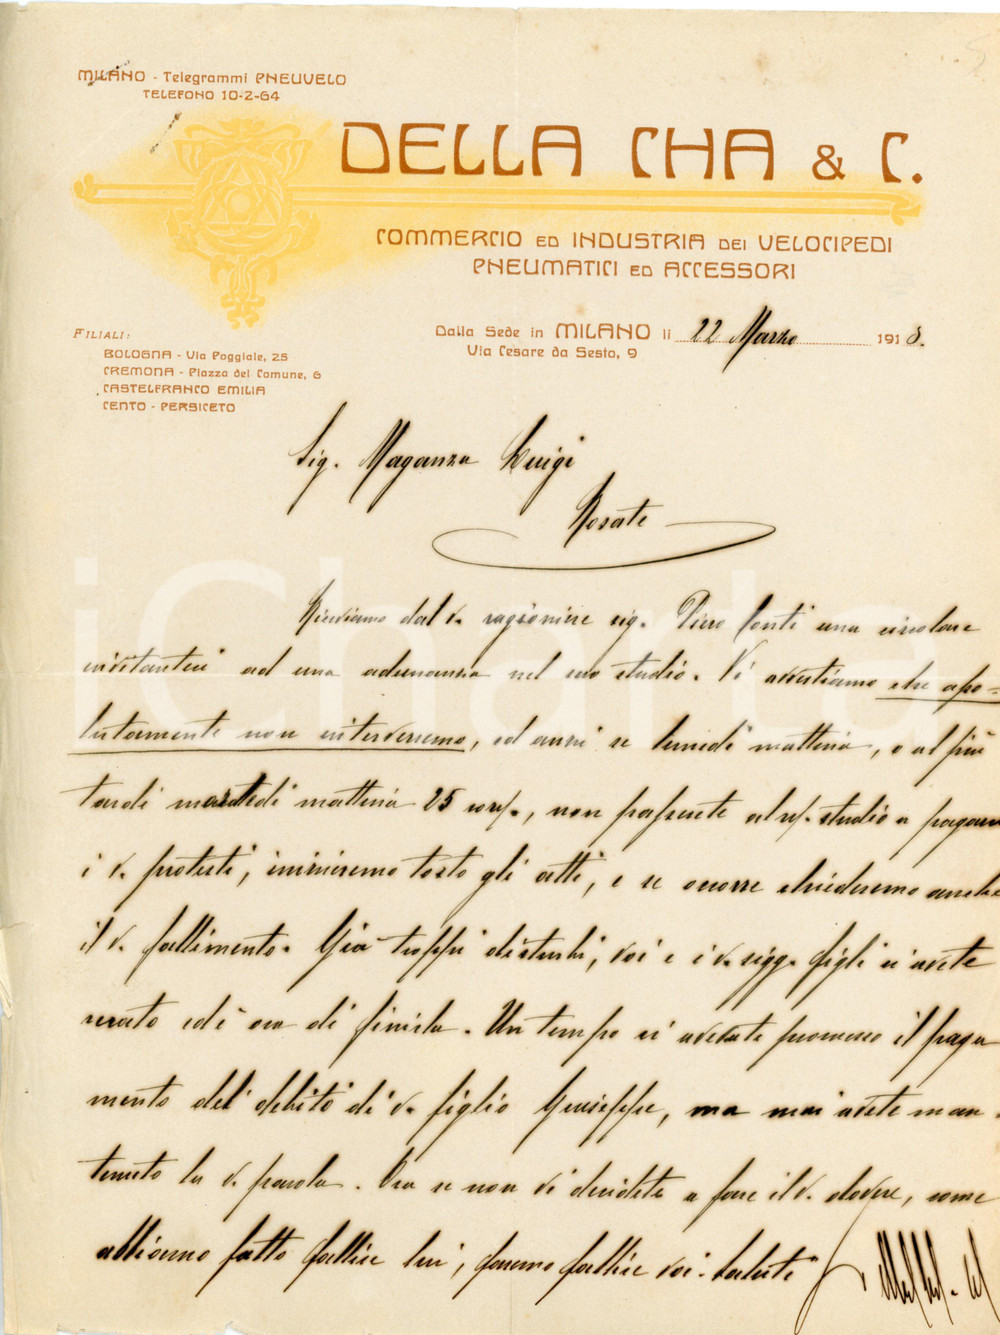 MILANO - Telegrammi PNEUVELO
TELEFONO 10-2-64
DELLA CHA & C.
COMMERCIO ED INDUSTRIA DEI VELOCIPEDI
PNEUMATICI ED ACCESSORI
FILIALI:
BOLOGNA - Via Poggiale, 25
CREMONA - Piazza del Comune, 6
CASTELFRANCO EMILIA
CENTO - PERSICETO
Dalla Sede in MILANO li 22 Marzo 1913.
Via Cesare da Sesto, 9
Sig. Maganza Luigi
Rosate
iCharta
Riceviamo dal v. ragioniere sig. Piero Conti una circolare
invitantici ad una adunanza nel suo studio. Vi avvertiamo che asso-
lutamente non interverremo, ed anzi se lunedì mattina, o al più
tardi martedì mattina 25 corr., non passerete al ns. studio a pagare
i v. protesti, inizieremo tosto gli atti, e se occorre chiederemo anche
il v. fallimento. Già troppi disturbi, voi e i v. sigg. figli ci avete
recato ed è ora di finirla. Un tempo ci avevate promesso il paga
mento dei debiti di v. figlio Giuseppe, ma mai avete man-
tenuto la v. parola. Ora se non vi decidete a fare il v. dovere, come
abbiamo fatto fallire lui, faremo fallire voi. Salute